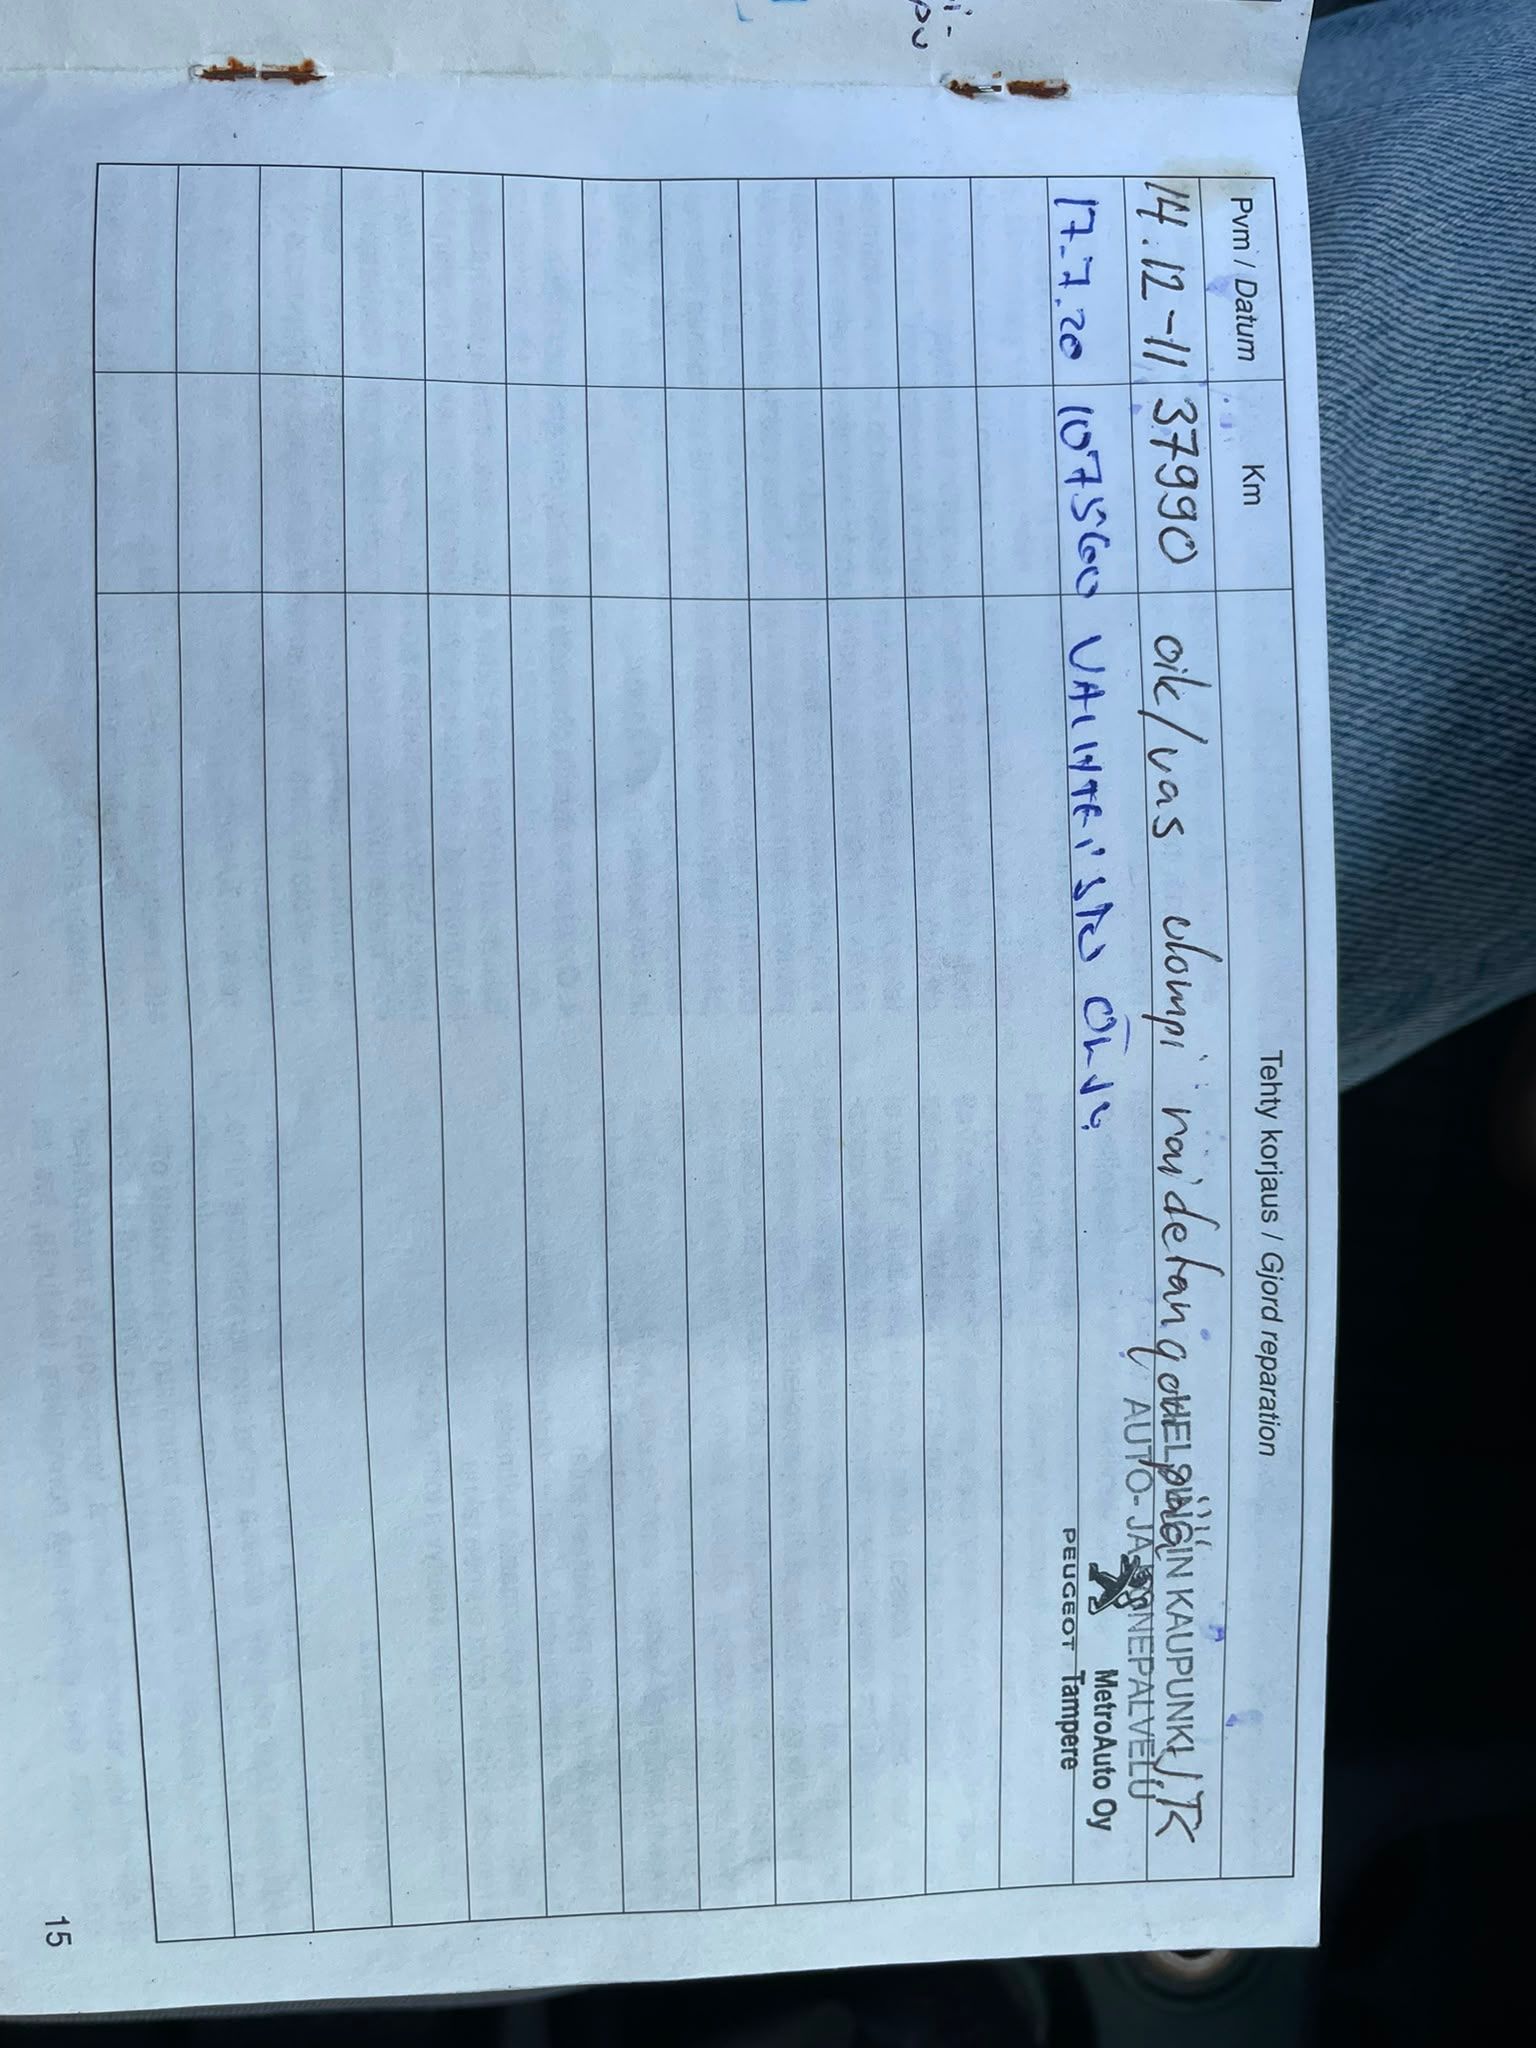 Pvm / Datum Km Tehty korjaus / Gjord reparation
14.12-11 37990 oik/vas ulompi raidetangon HELSINGIN KAUPUNKI / TK
AUTO- JA KONEPALVELU
17.7.20 107560 VAIHTEISTO ÖLJY MetroAuto Oy
PEUGEOT Tampere
15